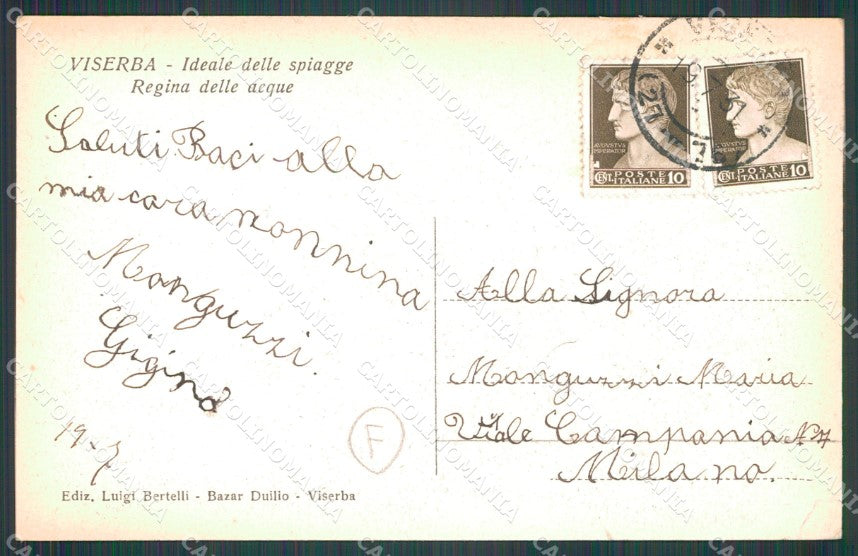 VISERBA - Ideale delle spiagge
Regina delle acque
Saluti Baci alla
mia cara nonnina
Monguzzi
Gigino
19-7
F
Ediz. Luigi Bertelli - Bazar Duilio - Viserba
AUGUSTUS
IMPERATOR
CENT. POSTE ITALIANE 10
AUGUSTUS
IMPERATOR
CENT. POSTE ITALIANE 10
Alla Signora
Monguzzi Maria
Viale Campania N
Milano.
CARTOLINOMANIA